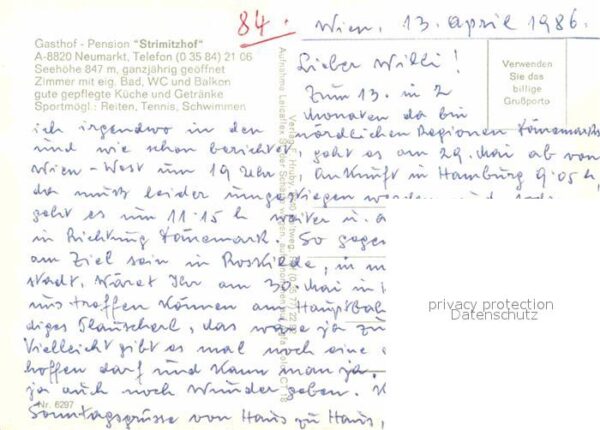 84.
Wien, 13. April 1986.
Gasthof - Pension "Strimitzhof"
A-8820 Neumarkt, Telefon (0 35 84) 21 06
Seehöhe 847 m, ganzjährig geöffnet
Zimmer mit eig. Bad, WC und Balkon
gute gepflegte Küche und Getränke
Sportmögl.: Reiten, Tennis, Schwimmen
Verwenden
Sie das
billige
Grußporto
Lieber Willi!
Zum 13. in 2
Monaten da bin
ich irgendwo in den nördlichen Regionen Dänemarks
und wie schon berichtet geht es am 29. Mai ab von
Wien-West um 19 Uhr - Ankunft in Hamburg 9.05 h,
da muß leider umgestiegen werden und
geht es um 11.15 h weiter u.
in Richtung Dänemark. So gegen
am Ziel sein in Roskilde, in
stadt. Wäret Ihr am 30. Mai in
uns treffen können am
diges Plauscherl, das wäre ja
Vielleicht gibt es mal noch eine
hoffen darf und kann man ja,
ja auch noch Wunder geben.
Nr. 6297
Sonntagsgrüsse von Haus zu Haus,
privacy protection
Datenschutz